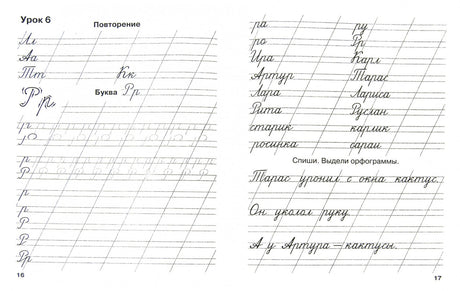 Урок 6
Повторение
Лл
Аа
Тт Кк
Буква Рр
Рр
р
р
р
р
р
р
Р
Р
Рр
16
ра ру
ро Рр
Ира Карл
Артур Тарас
Лара Лариса
Рита Руслан
старик карлик
росинка сараи
Спиши. Выдели орфограммы.
Тарас уронил с окна кактус.
Он уколол руку.
А у Артура – кактусы.
17